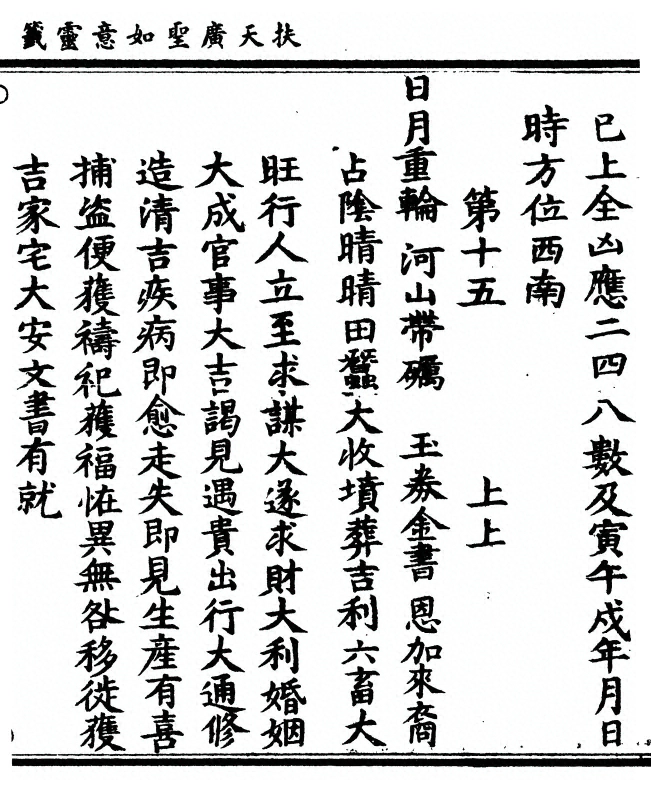 扶天廣聖如意靈籤
已上全凶應二四八數及寅午戍年月日
時方位西南
第十五 上上
日月重輪 河山帶礪 玉券金書 恩加來裔
占陰晴晴田蠶大收墳葬吉利六畜大
旺行人立至求謀大遂求財大利婚姻
大成官事大吉謁見遇貴出行大通修
造清吉疾病即愈走失即見生產有喜
捕盜便獲禱祀獲福恠異無咎移徙獲
吉家宅大安文書有就